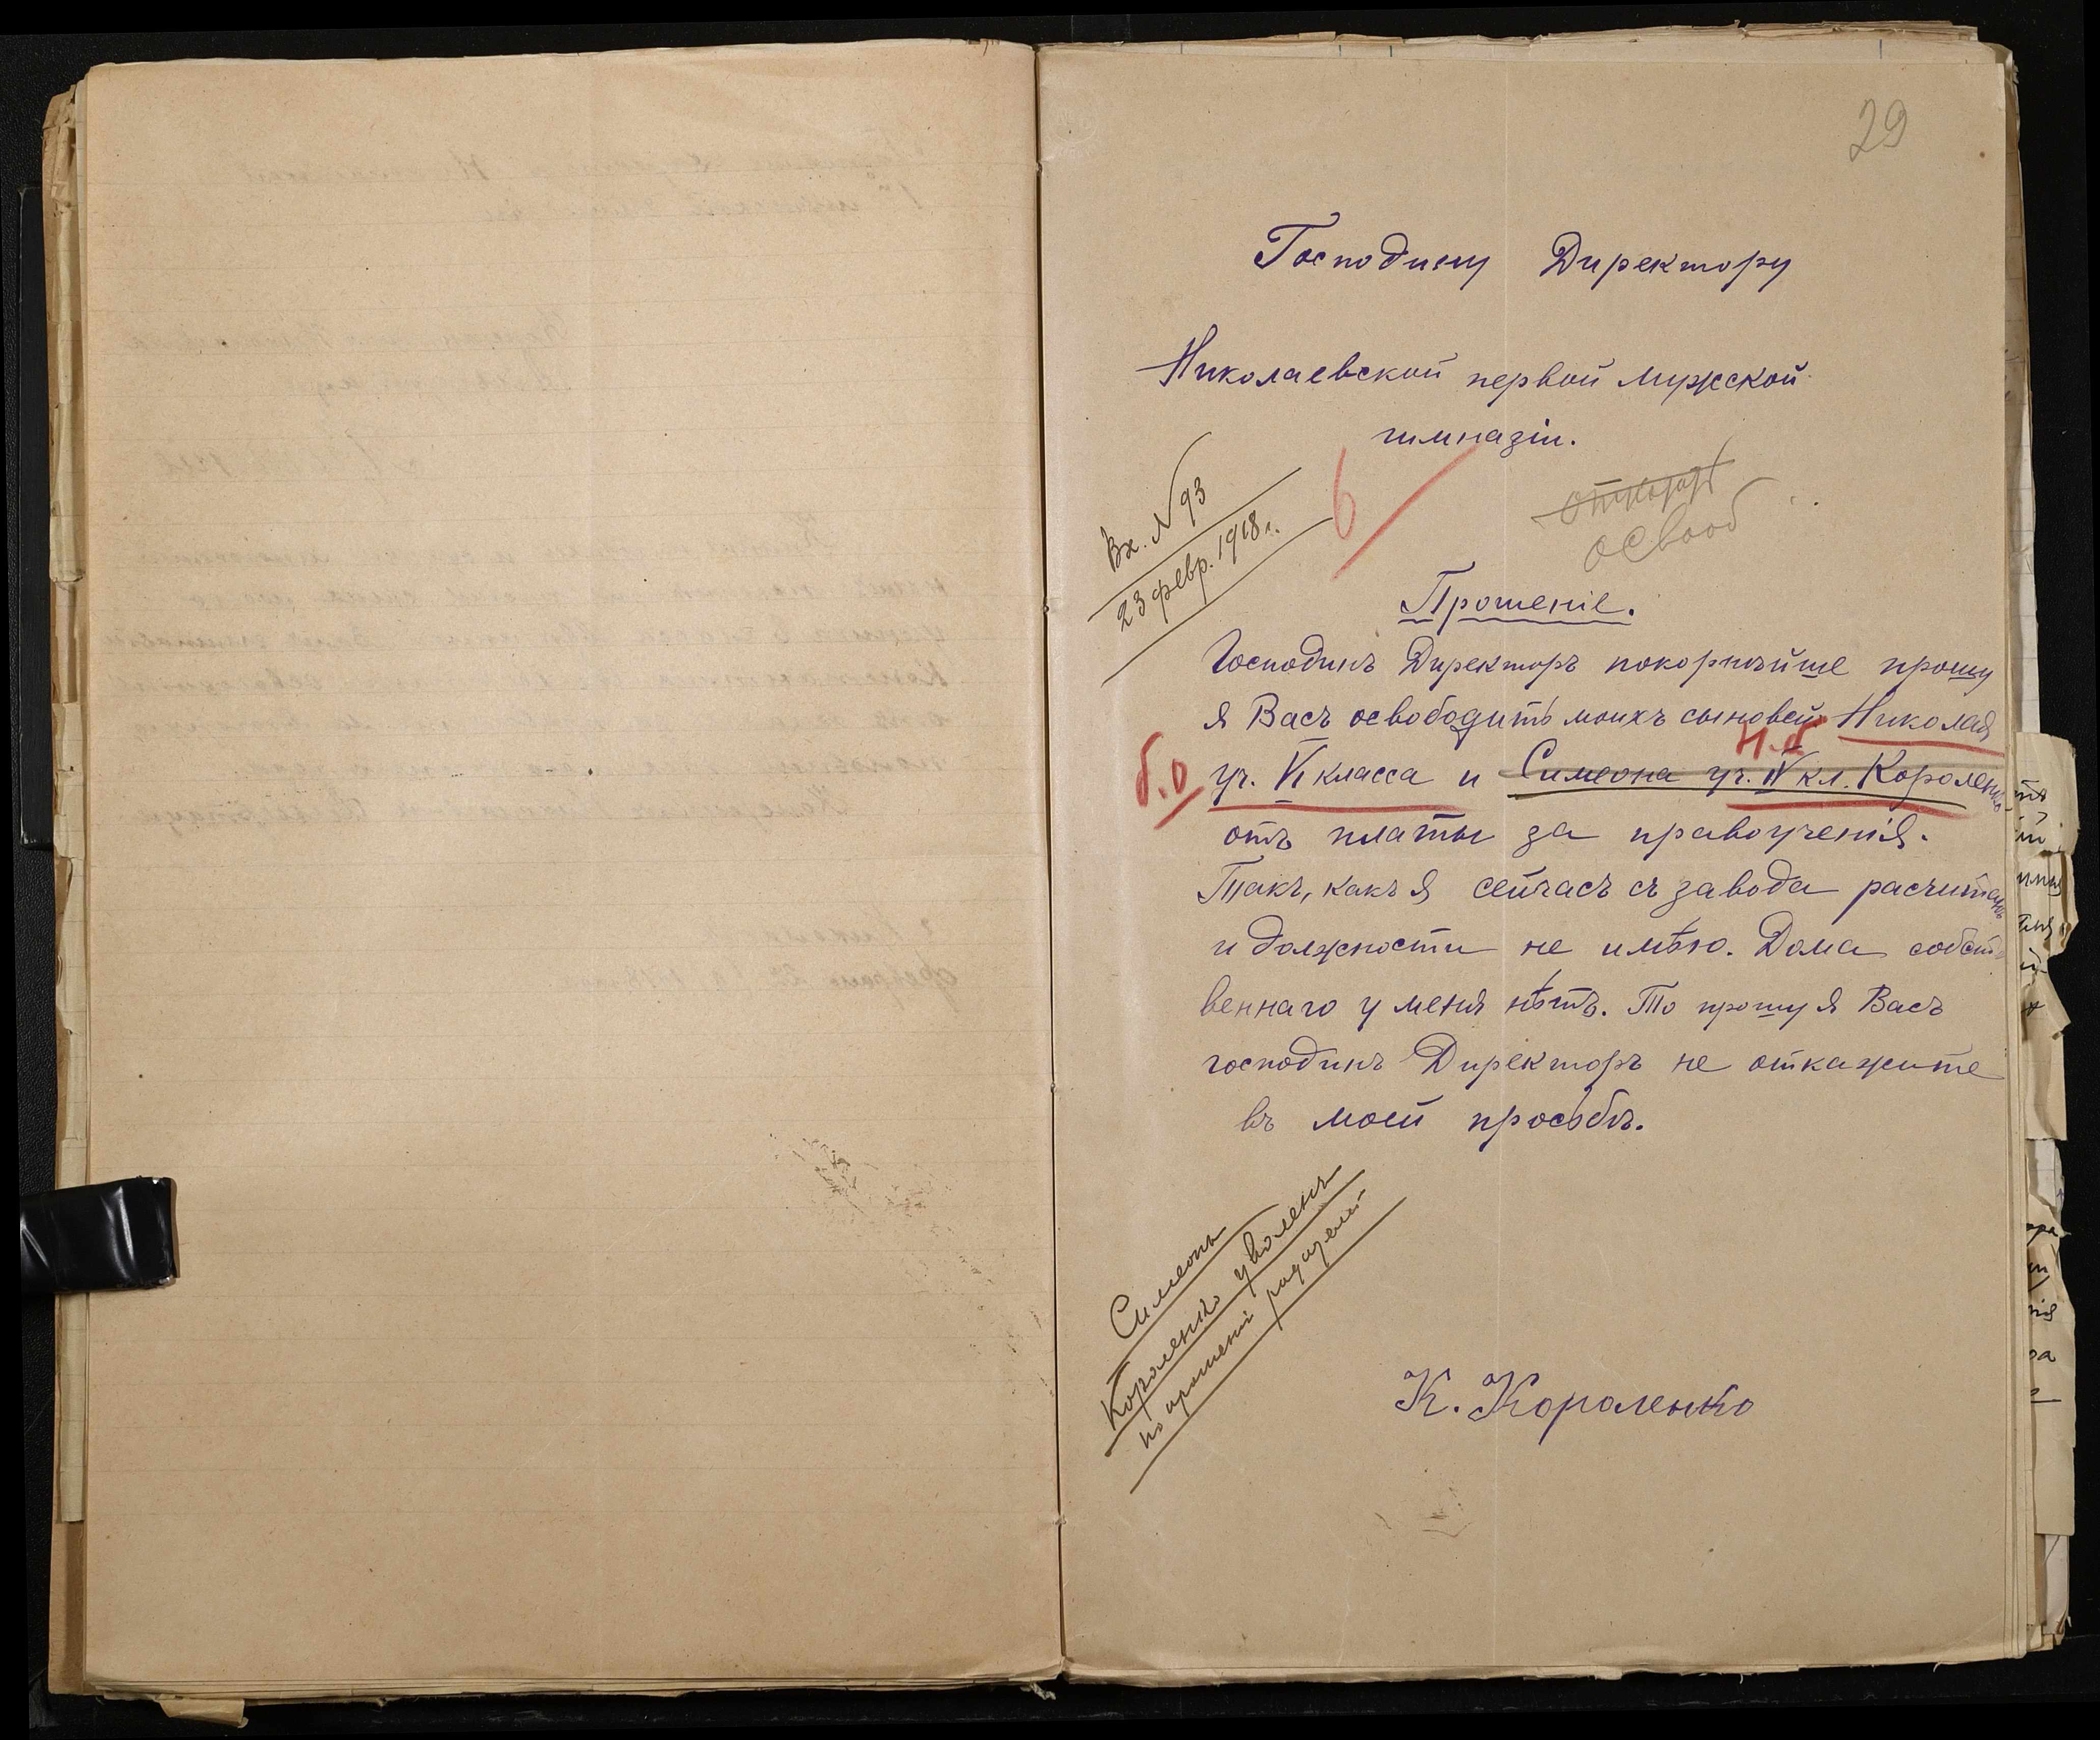 29
Господину Директору
Николаевской первой мужской
гимназіи.
Вх. N 93
23 февр. 1918 г.
б
освоб
Прошеніе.
Господинъ Директоръ покорнѣйше прошу
я Васъ освободить моихъ сыновей Николая
б.о
уч. VI класса и Симеона уч. IV кл. Короленко
отъ платы за правоученія.
Такъ, какъ я сейчасъ съ завода расчитанъ
и должности не имѣю. Дома собст
веннаго у меня нѣтъ. То прошу я Васъ
господинъ Директоръ не откажите
въ моей просьбѣ.
Симеонъ
Короленко уволенъ
по прошенію родителей
К. Короленко